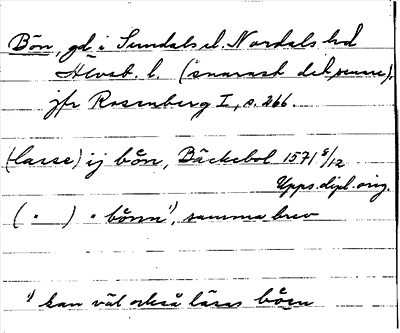 Bön, gd i Sundals el. Nordals hd
Älvsb. l. (snarast det senare),
jfr Rosenberg I, s. 266.
(lasse) ij bön, Bäckebol 1571 8/12
Upps. dipl. orig.
( " ) " bönn¹), samma brev
¹) kan väl också läsas böm